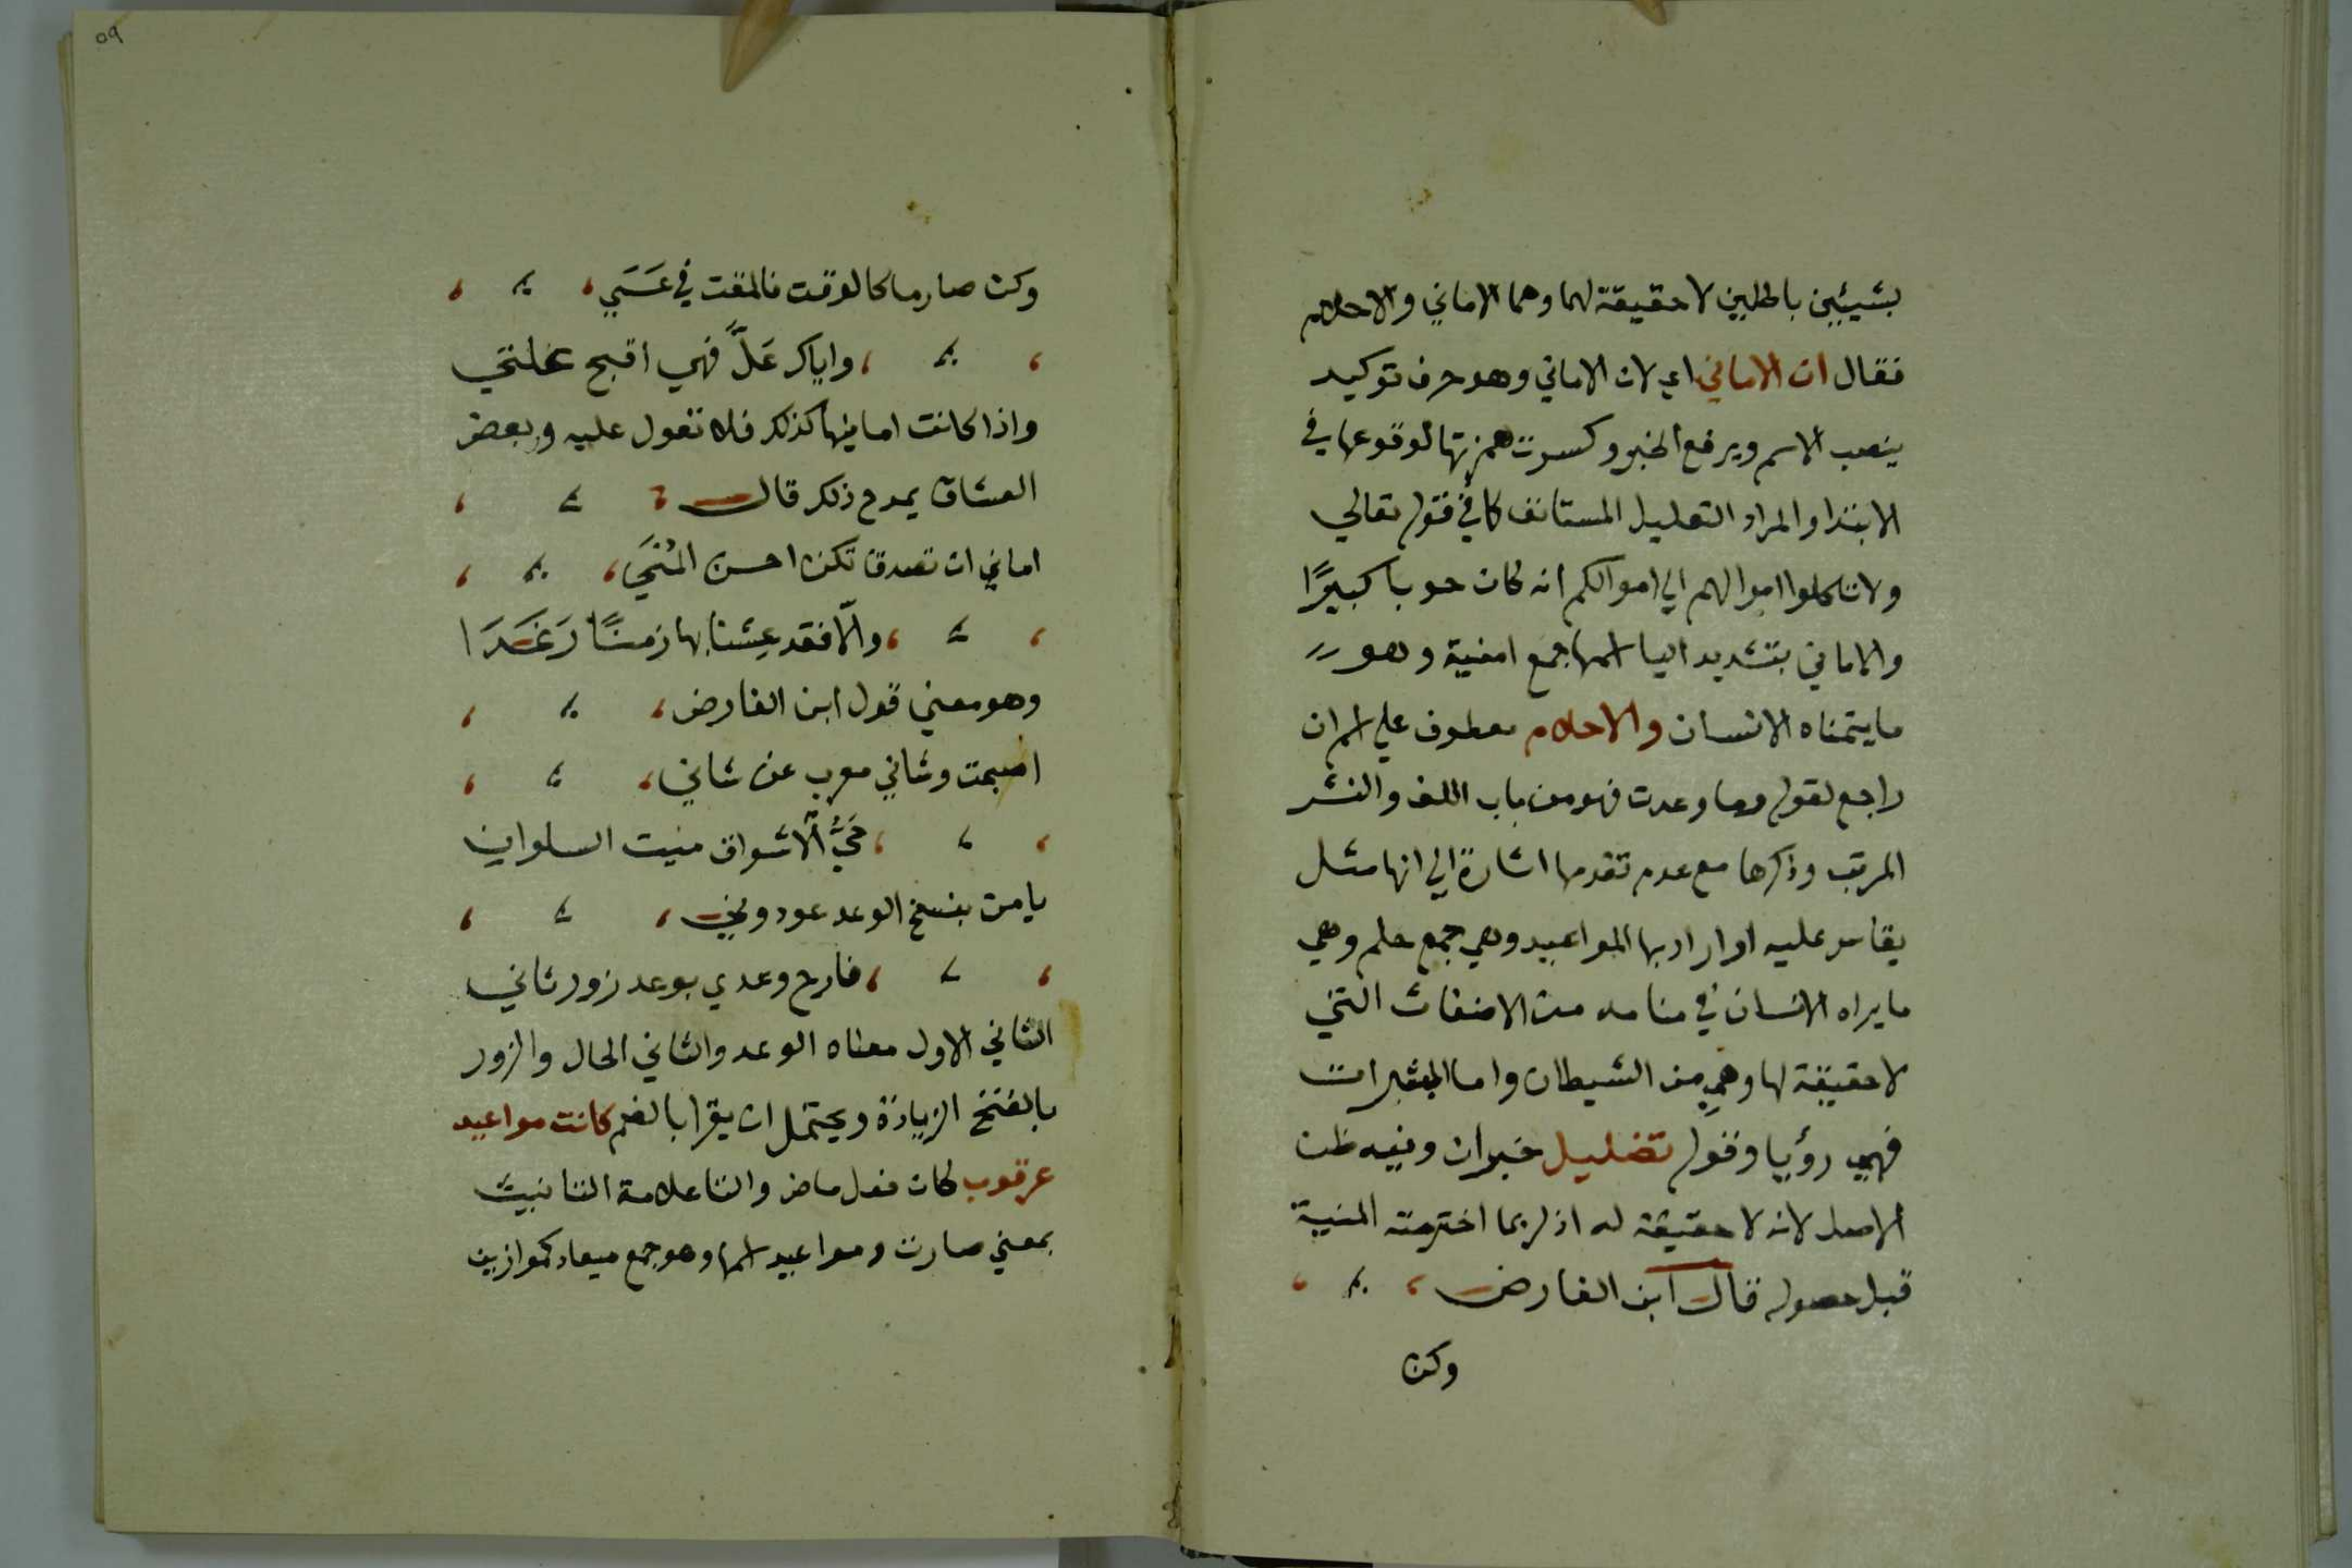 بشيئين باطلين لا حقيقة لهما وهما الاماني والاحلام
فقال ان الاماني اي لان الاماني وهو حرف توكيد
ينصب الاسم ويرفع الخبر وكسرت همزتها لوقوعها في
الابتدا والمراد التعليل المستانف كما في قوله تعالي
ولا تاكلوا اموالهم الي اموالكم انه كان حوبا كبيرًا
والاماني بتشديد اليا اسمها جمع امنية وهو
ما يتمناه الانسان والاحلام معطوف علي اسم ان
راجع لقوله وما وعدت فهو من باب اللف والنشر
المرتب وذكرها مع عدم تقدمها اشارة الي انها مثل
يقاس عليه اوار ادبها المواعيد وهي جمع حلم وهي
ما يراه الانسان في منامه من الاضغاث التي
لا حقيقة لها وهي من الشيطان واما المبشرات
فهي رؤيا وقوله تضليل خبران وفيه ظن
الاصل لانه لا حقيقة له اذ ربما اخترمته المنية
قبل حصوله قال ابن الفارض
وكن
٥٩
وكن صارما كالوقت فالمقت في عَسَي
واياك عَلَّ فهي اقبح علتي
واذا كانت امانيها كذلك فلا تعول عليه وبعض
العشاق يمدح ذلك قال
اماني ان تصدق تكن احسن المُنَي
والّا فقد عِشنا بها زمنًا رَغَدَا
وهو معني قول ابن الفارض
اصبحت وشاني معرب عن شاني
حَيَّ الاشواق ميت السلوان
يا من بنسخ الوعد عودوني
فارح وعدي بوعد زور ثاني
الثاني الاول معناه الوعد والثاني الحال والزور
بالفتح الزيارة ويحتمل ان يقرا بالضم كانت مواعيد
عرقوب كان فعل ماض والتا علامة التانيث
بمعني صارت ومواعيد اسمها وهو جمع ميعاد كموازين